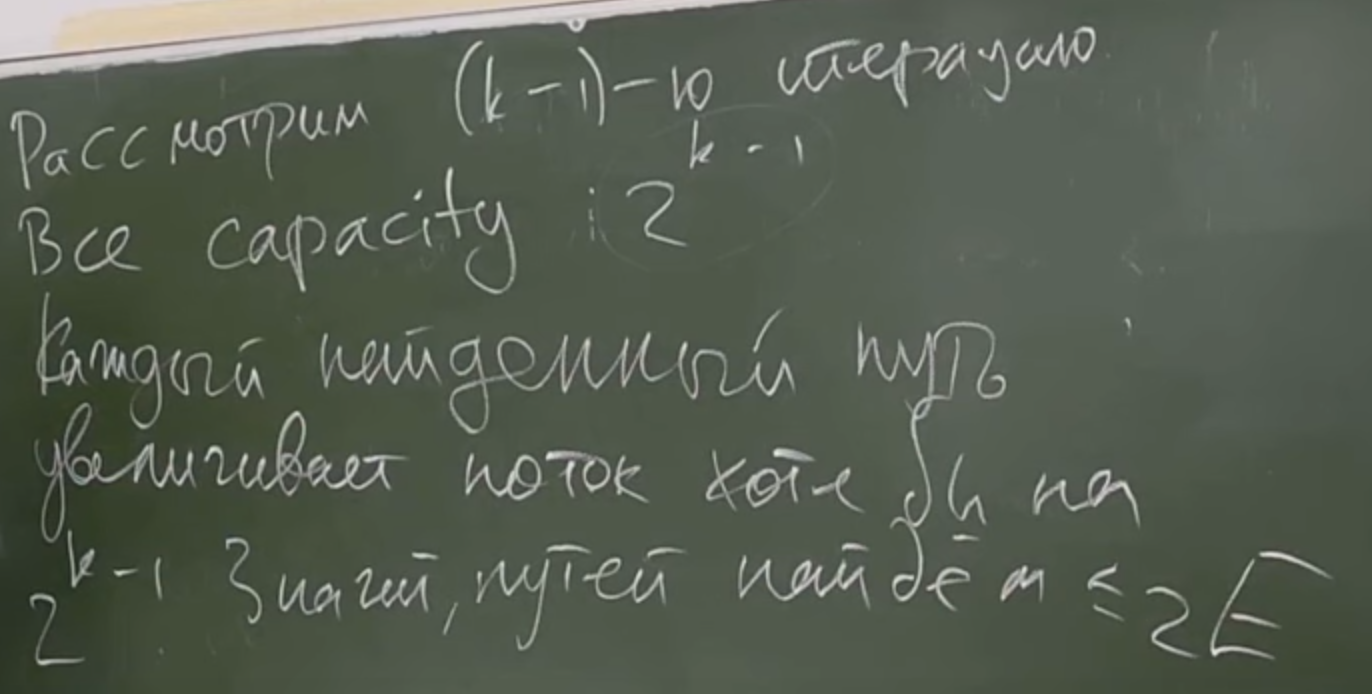 Рассмотрим (k-1)-ю итерацию.
Все capacity ⋮ 2^{k-1}
Каждый найденный путь
увеличивает поток хотя бы на
2^{k-1} Значит, путей найдём ≤ 2E